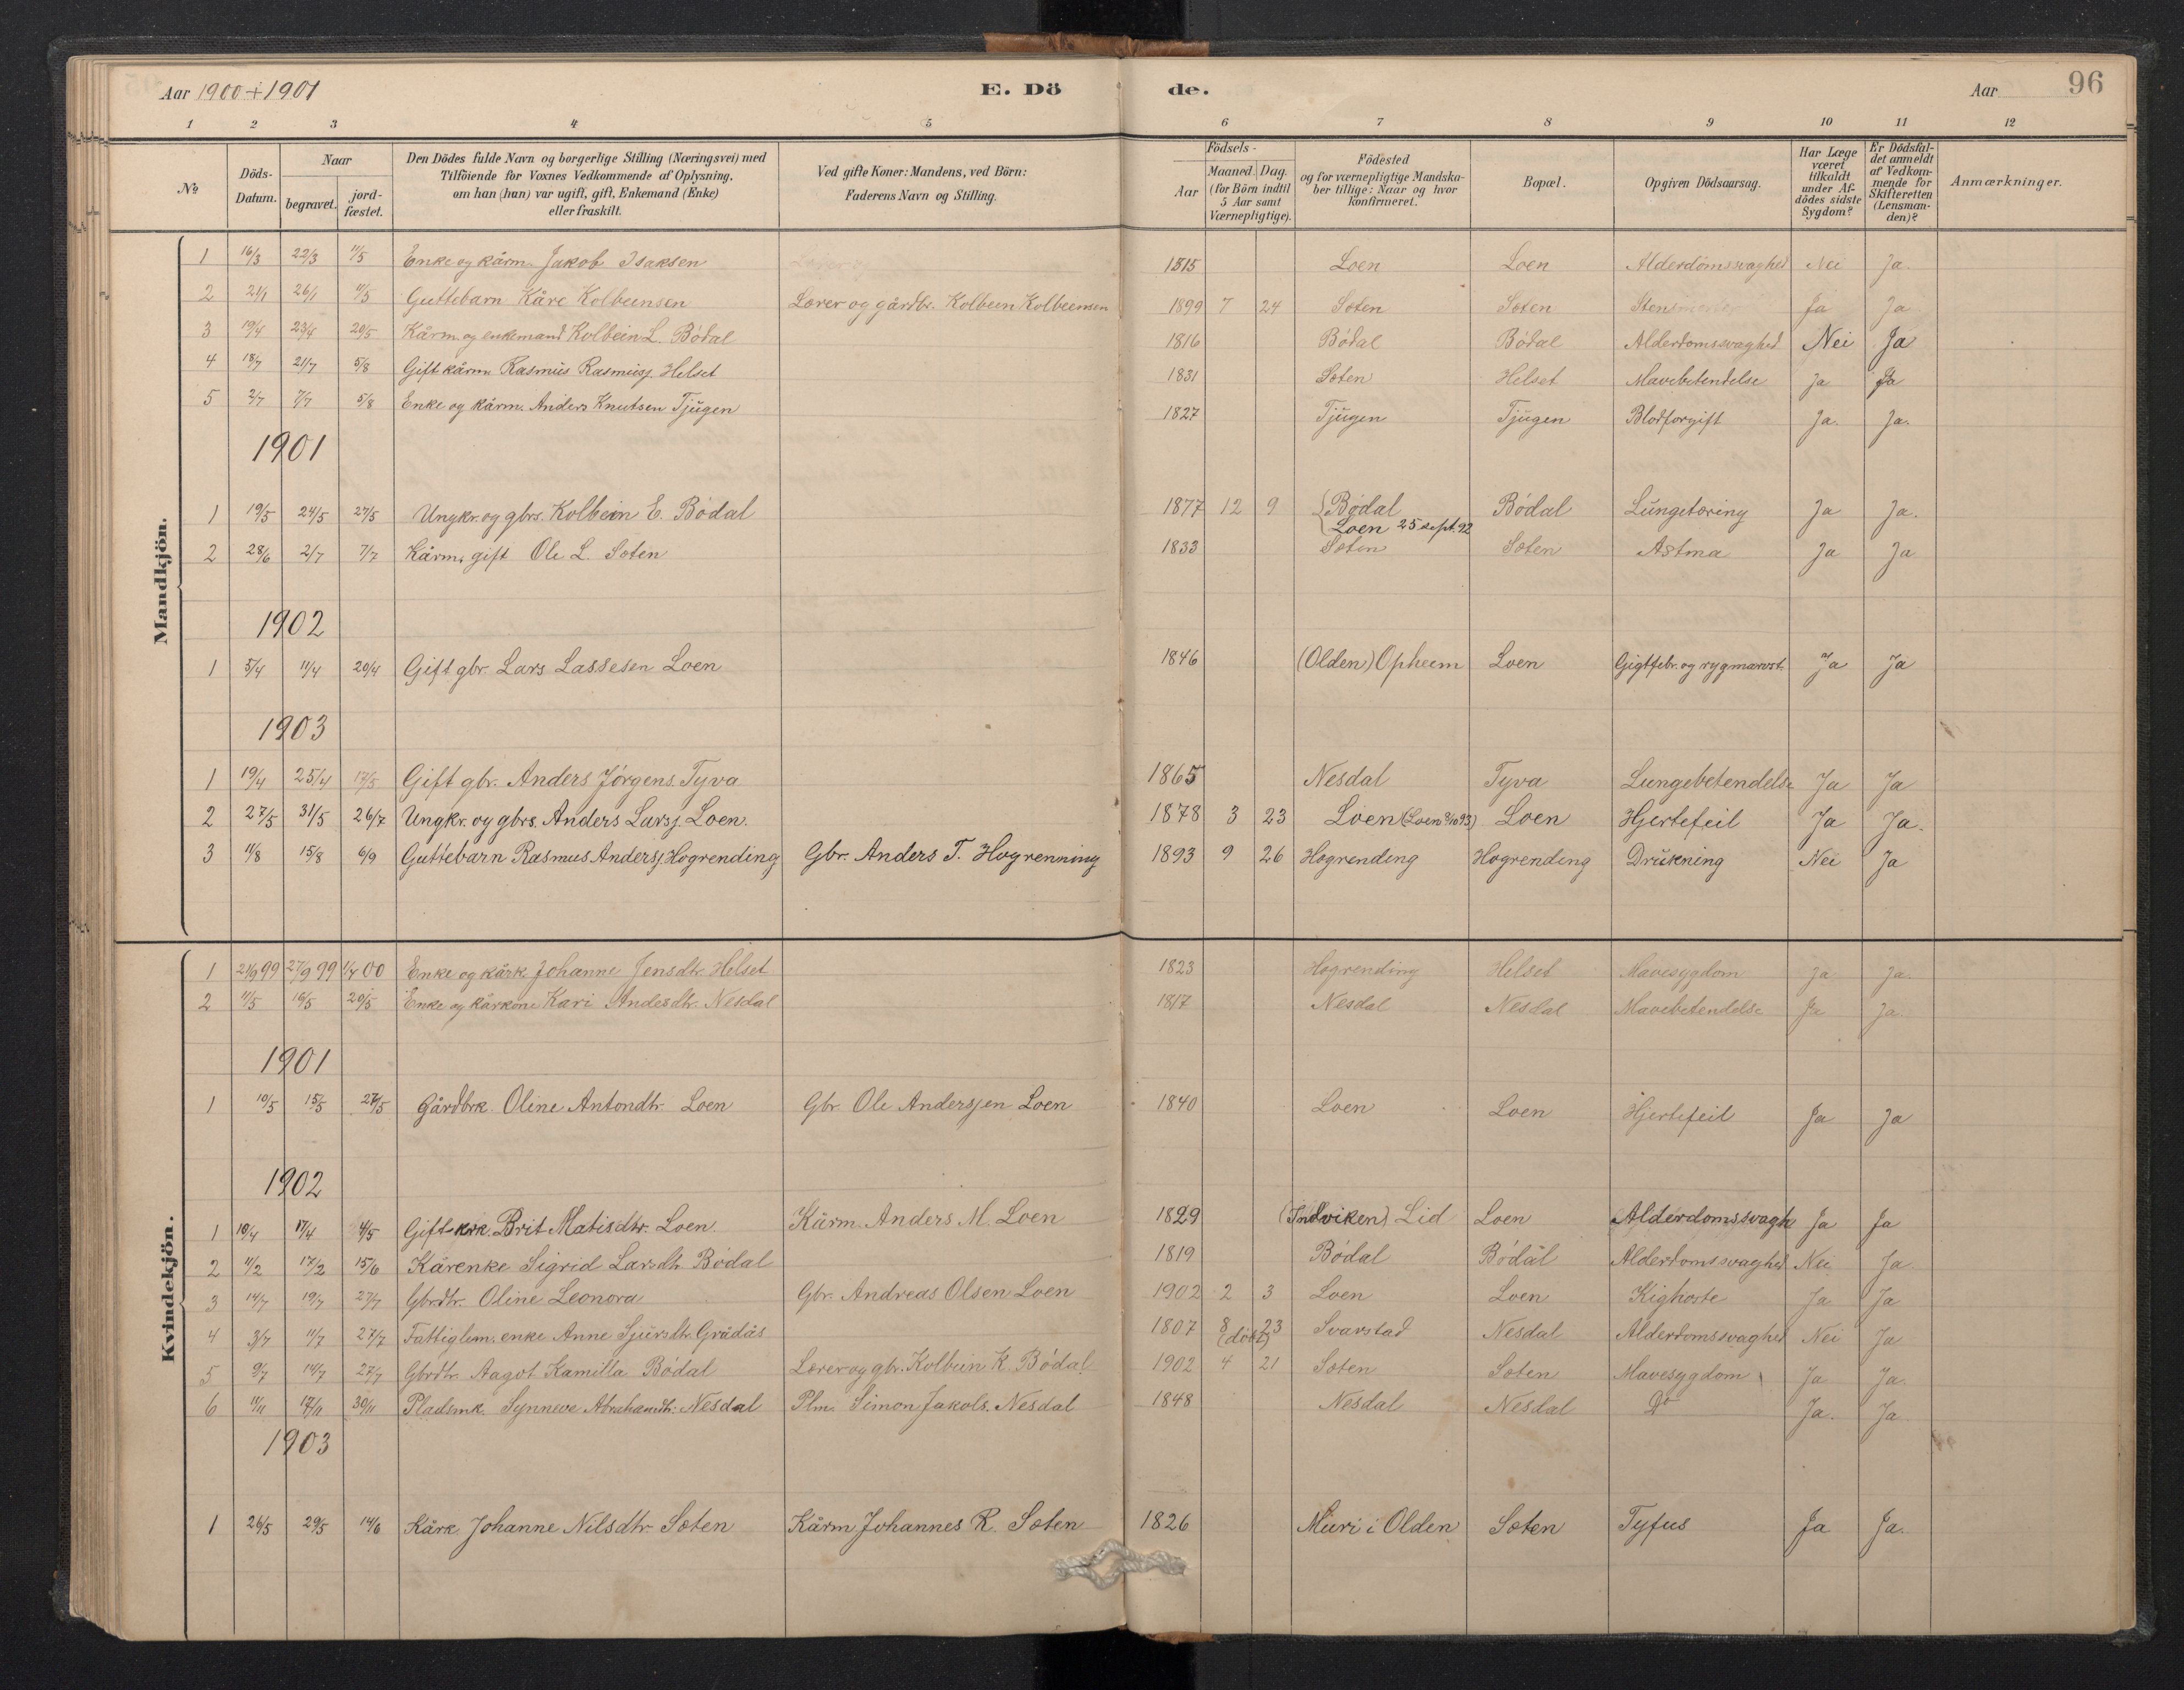 Aar 1900+1901 E. Dö de. Aar 96
1 2 3 4 5 6 7 8 9 10 11 12
No
Döds-Datum.
Naar
begravet.
jord-fæstet.
Den Dödes fulde Navn og borgerlige Stilling (Næringsvei) med
Tilföiende for Voxnes Vedkommende af Oplysning,
om han (hun) var ugift, gift, Enkemand (Enke)
eller fraskilt.
Ved gifte Koner: Mandens, ved Börn:
Faderens Navn og Stilling.
Födsels-
Aar
Maaned. Dag.
(for Börn indtil
5 Aar samt
Værnepligtige).
Födested
og for værnepligtige Mandska-
ber tillige: Naar og hvor
Konfirmeret.
Bopæl.
Opgiven Dödsaarsag.
Har Læge
været
tilkaldt
under Af-
dödes sidste
Sygdom?
Er Dödsfal-
det anmeldt
af Vedkom-
mende for
Skifteretten
(Lensman-
den)?
Anmærkninger.
Mandkjön.
1 16/3 22/3 11/5 Enke og kårm. Jakob Isaksen 1815 Loen Loen Alderdömssvaghed Nei Ja.
2 21/1 26/1 11/5 Guttebarn Kåre Kolbeensen Lærer og gårdbr. Kolbeen Kolbeensen 1899 7 24 Sæten Sæten Ja Ja
3 19/4 23/4 20/5 Kårm. og enkemand Kolbein L. Bódal 1816 Bódal Bódal Alderdomssvaghed Nei Ja
4 18/7 21/7 5/8 Gift kårm. Rasmus Rasmusj. Helset 1831 Sæten Helset Mavebetendelse Ja Ja
5 2/7 7/7 5/8 Enke og kårm. Anders Knutsen Tjugen 1827 Tjugen Tjugen Blodforgift Ja. Ja.
1901
1 19/5 24/5 27/5 Ungkr. og gbrs. Kolbein E. Bódal 1877 12 9 Bódal Bódal Lungetæring Ja Ja.
Loen 25 sept. 92
2 28/6 2/7 7/7 Kårm. gift Ole L. Sæten 1833 Sæten Sæten Astma Ja Ja
1902
1 5/4 11/4 20/4 Gift gbr. Lars Lassesen Loen 1846 (Olden) Opheem Loen Gigtfebr. og rygmarvst. Ja Ja
1903
1 19/4 25/4 17/5 Gift gbr. Anders Jörgens. Tyva 1865 Nesdal Tyva Lungebetendelse Ja Ja
2 27/5 31/5 26/7 Ungkr. og gbrs. Anders Larsj. Loen. 1878 3 23 Loen (Loen 8/10 93) Loen Hjertefeil Ja Ja.
3 11/8 15/8 6/9 Guttebarn Rasmus Andersj. Hogrending Gbr. Anders T. Hogrenning 1893 9 26 Hogrending Hogrending Drukning Nei Ja
Kvindekjön.
1 21/9 99 27/9 99 1/4 00 Enke og kårk. Johanne Jensdtr. Helset 1823 Hogrending Helset Mavesygdom Ja Ja.
2 11/5 16/5 20/5 Enke og kårkone Kari Andesdtr. Nesdal 1817 Nesdal Nesdal Mavebetendelse Ja Ja.
1901
1 10/5 15/5 27/5 Gårdbrk. Oline Antondtr. Loen Gbr. Ole Andersjen Loen 1840 Loen Loen Hjertefeil Ja Ja
1902
1 10/4 17/4 4/5 Gift krk. Brit Matisdtr. Loen. Kårm. Anders M. Loen 1829 (Indviken) Lid Loen Alderdomssvagh Ja Ja
2 11/2 17/2 15/6 Kårenke Sigrid Larsdtr. Bódal 1819 Bódal Bódal Alderdomssvaghed Nei Ja
3 14/7 19/7 27/7 Gbrdtr. Oline Leonora Gbr. Andreas Olsen Loen 1902 2 3 Loen Loen Kighoste Ja Ja
4 3/7 11/7 27/7 Fattiglem. enke Anne Sjursdtr. Grådås 1807 8 23 (döbt) Svarstad Nesdal Alderdomssvaghed Nei Ja
5 9/7 14/7 27/7 Gbrdtr. Aagot Kamilla Bódal Lærer og gbr. Kolbein K. Bódal 1902 4 21 Sæten Sæten Mavesygdom Ja Ja.
6 11/11 17/11 30/11 Pladsmk. Synneve Abrahamdtr. Nesdal Plm. Simon Jakols. Nesdal 1848 Nesdal Nesdal Do Ja. Ja
1903
1 26/5 29/5 14/6 Kårk. Johanne Nilsdtr. Sæten Kårm Johannes R. Sæten 1826 Muri i Olden Sæten Tyfus Ja Ja.